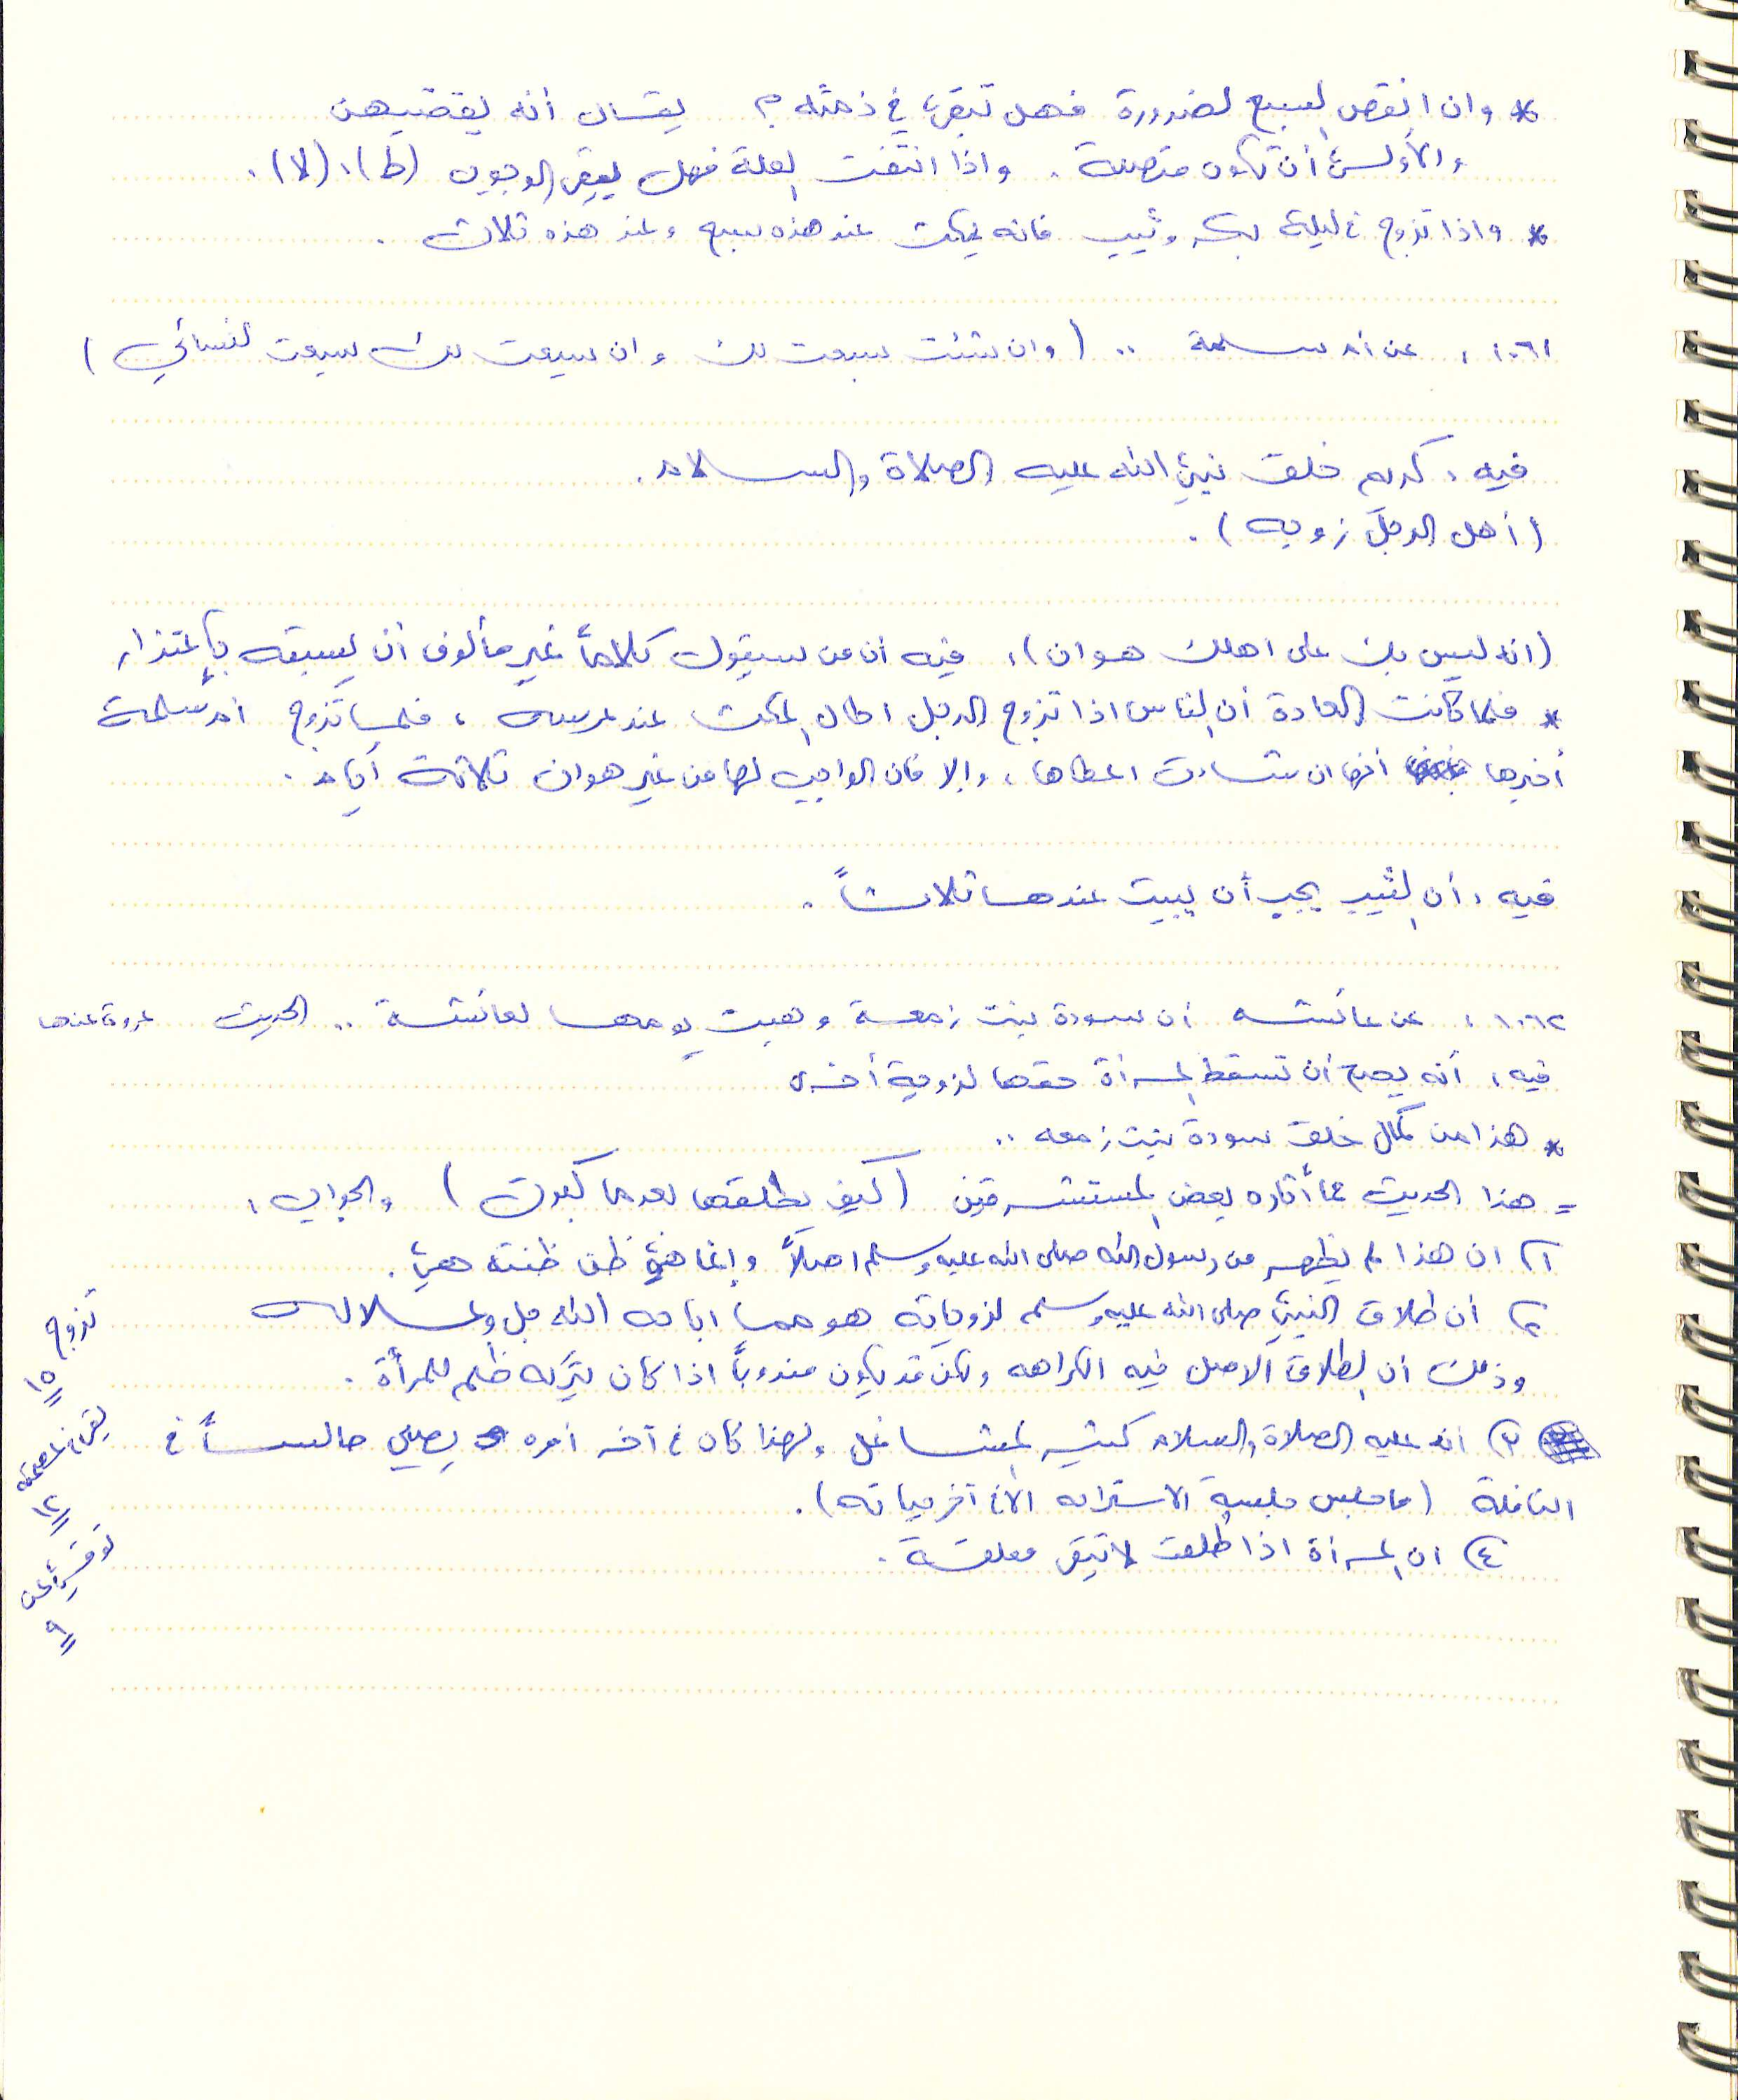 * وان انقص السبع لضرورة فهل تبقى في ذمته ؟ يقال أنه يقضيهن
والأولى أن تكون متصلة . واذا انتفت العلة فهل يبقى الوجوب (ط) ، (لا) .
* واذا تزوج في ليلة بكر وثيب فانه يمكث عند هذه سبع وعند هذه ثلاث .
١٠٦١ ، عن أم سلمة .. ( وان شئت سبعت لك وان سبعت لك سبعت لنسائي )
فيه ، كرم خلق نبي الله عليه الصلاة والسلام .
( أهل الرجل زوجه ) .
( انه ليس بك على اهلك هوان ) ، فيه أن من سيقول كلاماً غير مألوف أن يسبقه بإعتذار
* فلما كانت العادة أن الناس اذا تزوج الرجل اطال المكث عند عرسه ، فلما تزوج ام سلمة
أخبرها أنها ان شاءت اعطاها ، وإلا فان الواجب لها من غير هوان ثلاثة أيام .
فيه ، أن الثيب يجب أن يبيت عندها ثلاثاً .
١٠٦٢ ، عن عائشه أن سودة بنت زمعة وهبت يومها لعائشة .. الحديث عروة عنها
فيه ، أنه يصح ان تسقط المرأة حقها لزوجة أخرى
* هذا من كمال خلق سودة بنت زمعه ..
= هذا الحديث مما أثاره بعض المستشرقين ( كيف يطلقها بعدما كبرت ) والجواب ،
١) ان هذا لم يظهر من رسول الله صلى الله عليه وسلم اصلاً وإنما هي ظن ظنته هي .
٢) أن طلاق النبي صلى الله عليه وسلم لزوجاته هو مما اباحه الله جل وعلا له
وذلك أن الطلاق الاصل فيه الكراهه ولكن قد يكون مندوباً اذا كان بتركه ظلم للمرأة .
٣) انه عليه الصلاة والسلام كثير المشاغل ولهذا كان في آخر أمره يصلي جالساً في
النافلة ( ما جلس جلسة الاستراحه الا في آخر حياته ) .
٤) ان المرأة اذا طُلقت لا تبقى معلقة .
تزوج
١٥
١٢
توفي عن
٩